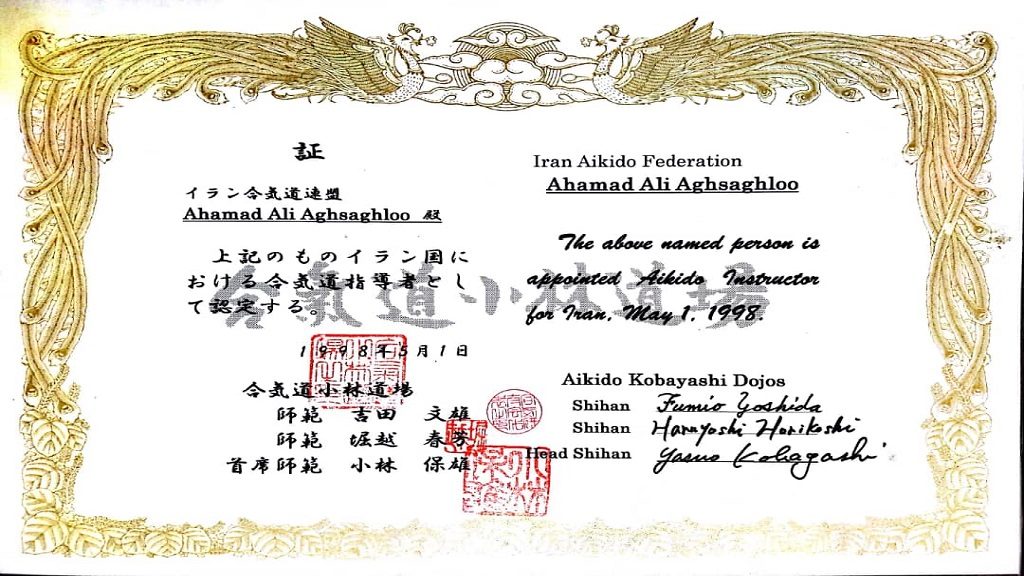 証
イラン合気道連盟
Ahamad Ali Aghsaghloo 殿
上記のものイラン国に
おける合気道指導者とし
て認定する。
1998年5月1日
合気道小林道場
師範 吉田 文雄
師範 堀越 春芳
首席師範 小林 保雄
Iran Aikido Federation
Ahamad Ali Aghsaghloo
The above named person is
appointed Aikido Instructor
for Iran, May 1, 1998.
Aikido Kobayashi Dojos
Shihan Fumio Yoshida
Shihan Haruyoshi Horikoshi
Head Shihan Yasuo Kobayashi
合氣道小林道場